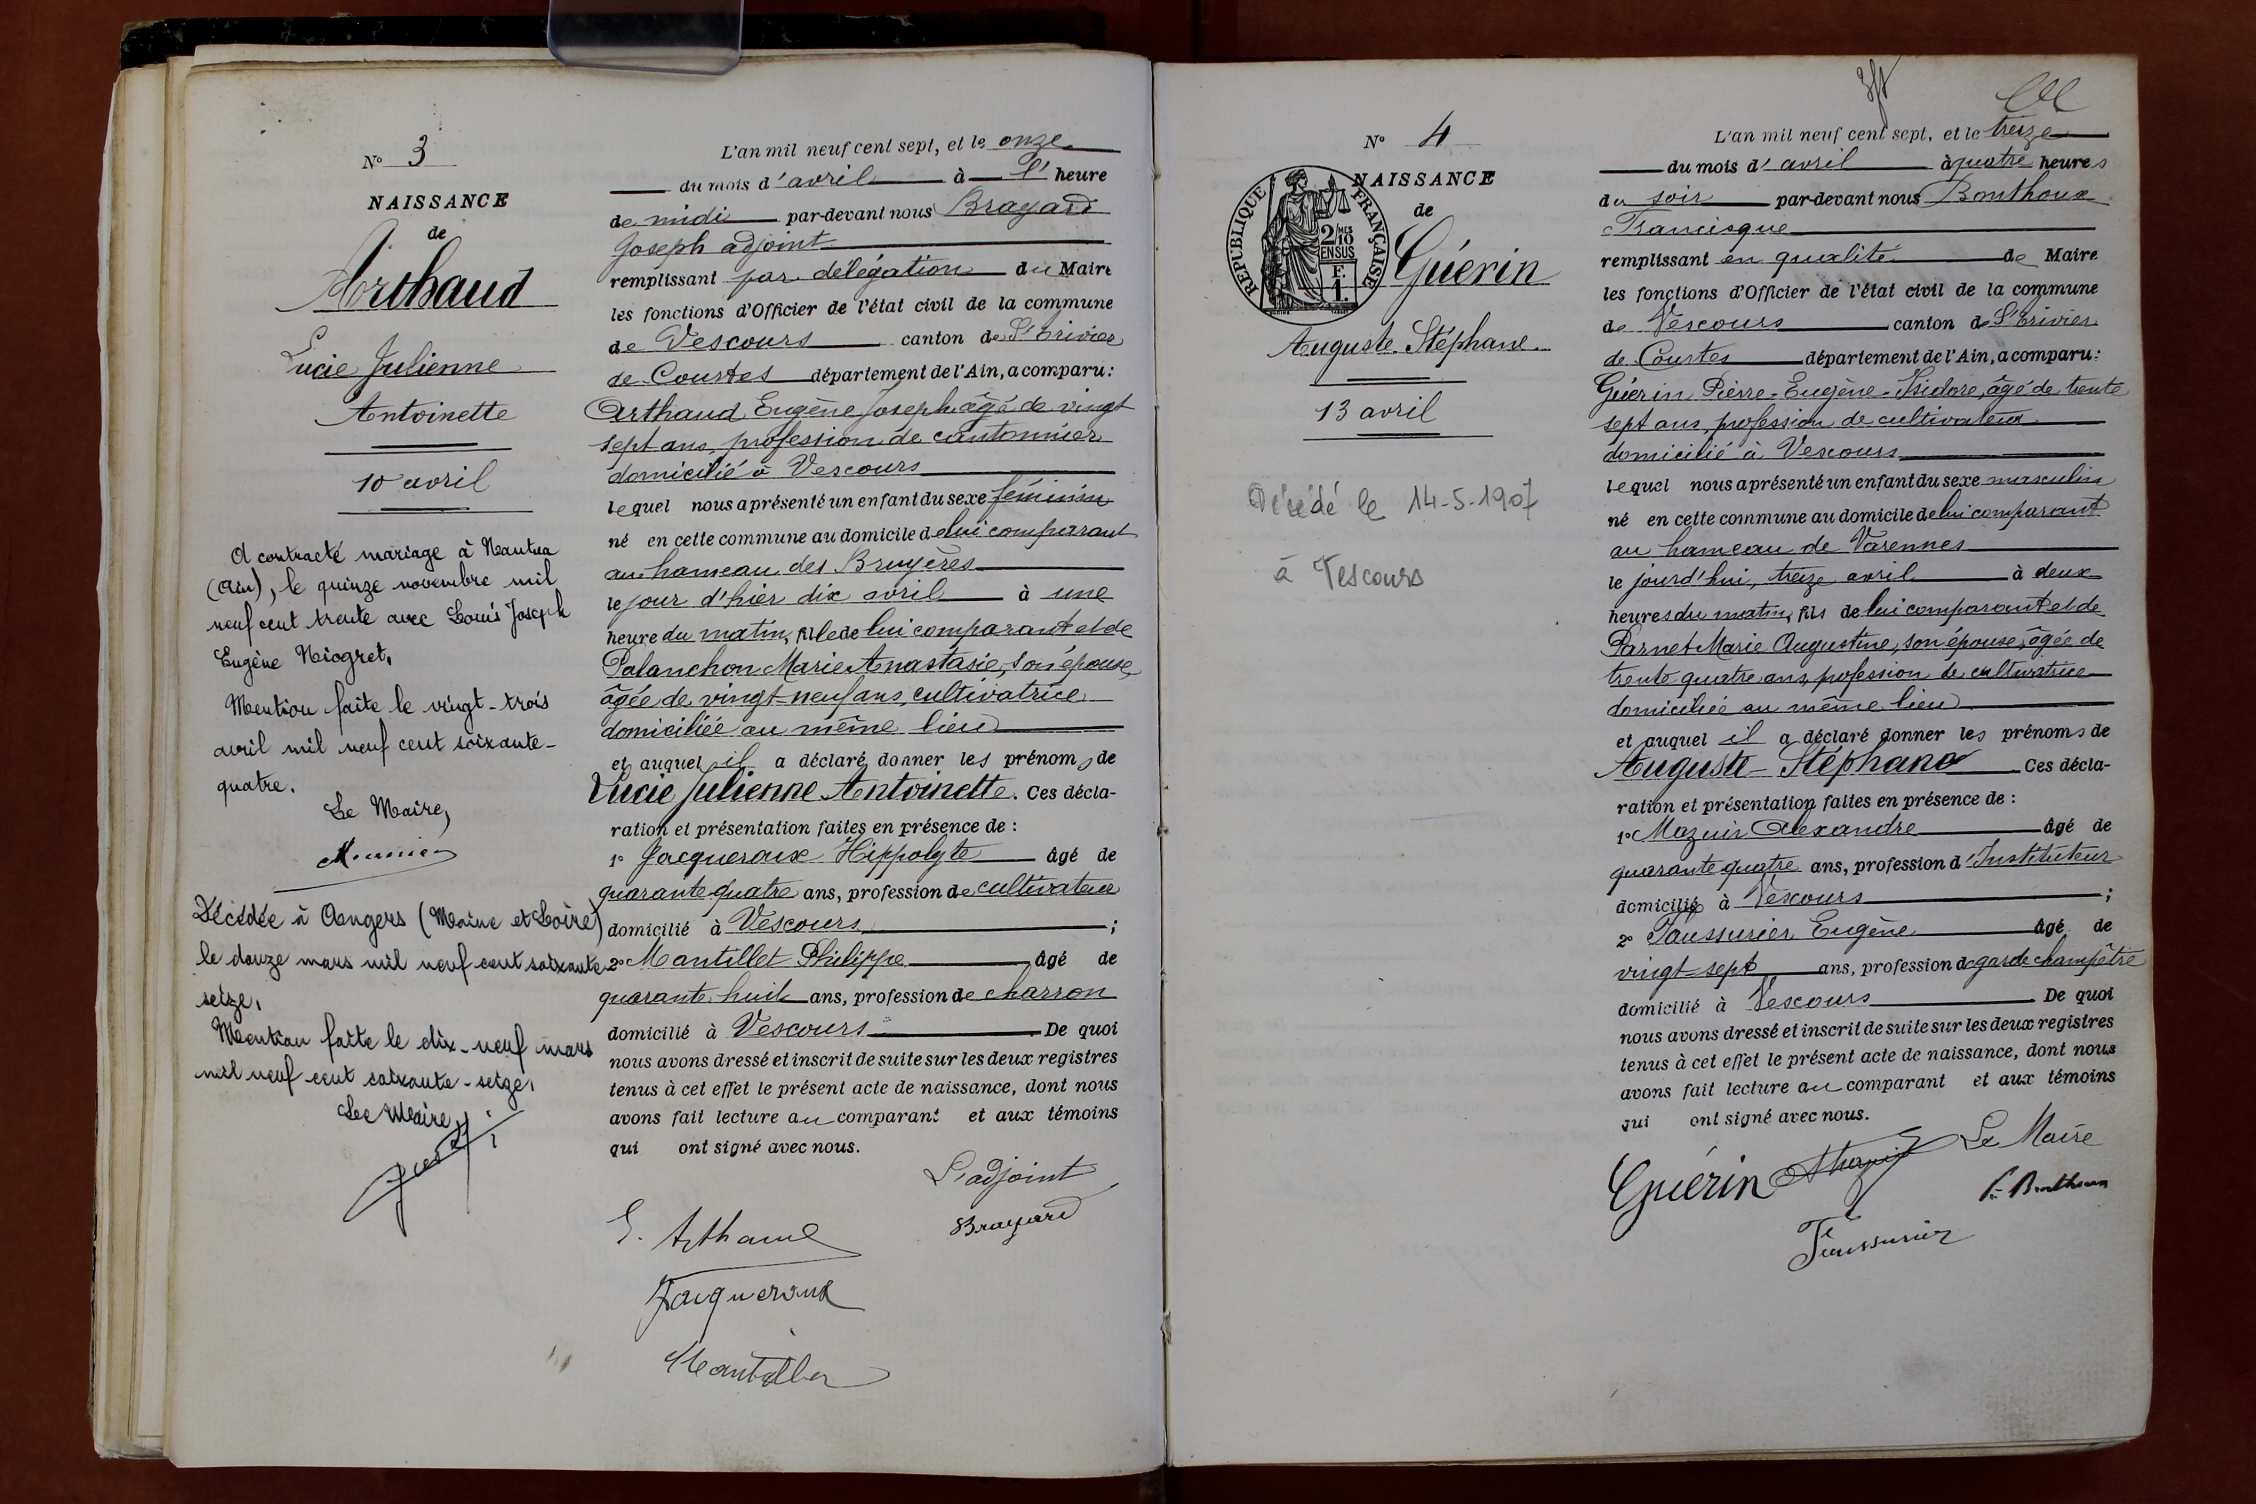 N° 3
NAISSANCE
de
Arthaud
Lucie Julienne
Antoinette
10 avril
A contracté mariage à Nantua
(Ain), le quinze novembre mil
neuf cent trente avec Louis Joseph
Eugène Niogret.
Mention faite le vingt-trois
avril mil neuf cent soixante-
quatre.
Le Maire,
Décédée à Angers (Maine et Loire)
le douze mars mil neuf cent soixante
seize.
Mention faite le dix-neuf mars
mil neuf cent soixante-seize.
Le Maire,
L'an mil neuf cent sept, et le onze
du mois d'avril à l' heure
de midi par-devant nous Brayard
Joseph adjoint
remplissant par délégation du Maire
les fonctions d'Officier de l'état civil de la commune
de Vescours canton de St Trivier
de Courtes département de l'Ain, a comparu:
Arthaud Eugène Joseph âgé de vingt
sept ans, profession de cantonnier
domicilié à Vescours
lequel nous a présenté un enfant du sexe féminin
né en cette commune au domicile de lui comparant
au hameau des Bruyères
le jour d'hier dix avril à une
heure du matin, fille de lui comparant et de
Palanchon Marie Anastasie, son épouse,
âgée de vingt-neuf ans, cultivatrice
domiciliée au même lieu
et auquel il a déclaré donner les prénoms de
Lucie Julienne Antoinette. Ces décla-
ration et présentation faites en présence de :
1° Jacqueroux Hippolyte âgé de
quarante-quatre ans, profession de cultivateur
domicilié à Vescours ;
2° Mantillet Philippe âgé de
quarante huit ans, profession de charron
domicilié à Vescours. De quoi
nous avons dressé et inscrit de suite sur les deux registres
tenus à cet effet le présent acte de naissance, dont nous
avons fait lecture au comparant et aux témoins
qui ont signé avec nous.
L'adjoint
E. Arthaud
Brayard
Jacqueroux
Mantillet
N° 4
NAISSANCE
de
RÉPUBLIQUE FRANÇAISE
2/10
EN SUS
F.
1.
Guérin
Auguste Stéphane
13 avril
Décédé le 14-5-1907
à Vescours
L'an mil neuf cent sept, et le treize
du mois d'avril à quatre heures
du soir par-devant nous Bonthoux
Francisque
remplissant en qualité de Maire
les fonctions d'Officier de l'état civil de la commune
de Vescours canton de St Trivier
de Courtes département de l'Ain, a comparu:
Guérin Pierre-Eugène-Isidore, âgé de trente
sept ans, profession de cultivateur
domicilié à Vescours
lequel nous a présenté un enfant du sexe masculin
né en cette commune au domicile de lui comparant
au hameau de Varennes
le jourd'hui, treize avril à deux
heures du matin, fils de lui comparant et de
Parnet Marie Augustine, son épouse, âgée de
trente quatre ans, profession de cultivatrice
domiciliée au même lieu
et auquel il a déclaré donner les prénoms de
Auguste-Stéphane Ces décla-
ration et présentation faites en présence de :
1° Mazuir Alexandre âgé de
quarante quatre ans, profession d'Instituteur
domicilié à Vescours ;
2° Faussurier Eugène âgé de
vingt-sept ans, profession de garde champêtre
domicilié à Vescours De quoi
nous avons dressé et inscrit de suite sur les deux registres
tenus à cet effet le présent acte de naissance, dont nous
avons fait lecture au comparant et aux témoins
qui ont signé avec nous.
Le Maire
Guérin
F. Bonthoux
Faussurier